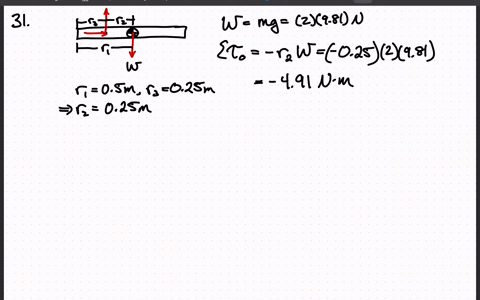 31.
r₃ r₂
r₁
W
r₁ = 0.5m, r₃ = 0.25m
⇒ r₂ = 0.25m
W = mg = (2)(9.81) N
Στ₀ = -r₂W = (-0.25)(2)(9.81)
= -4.91 N·m